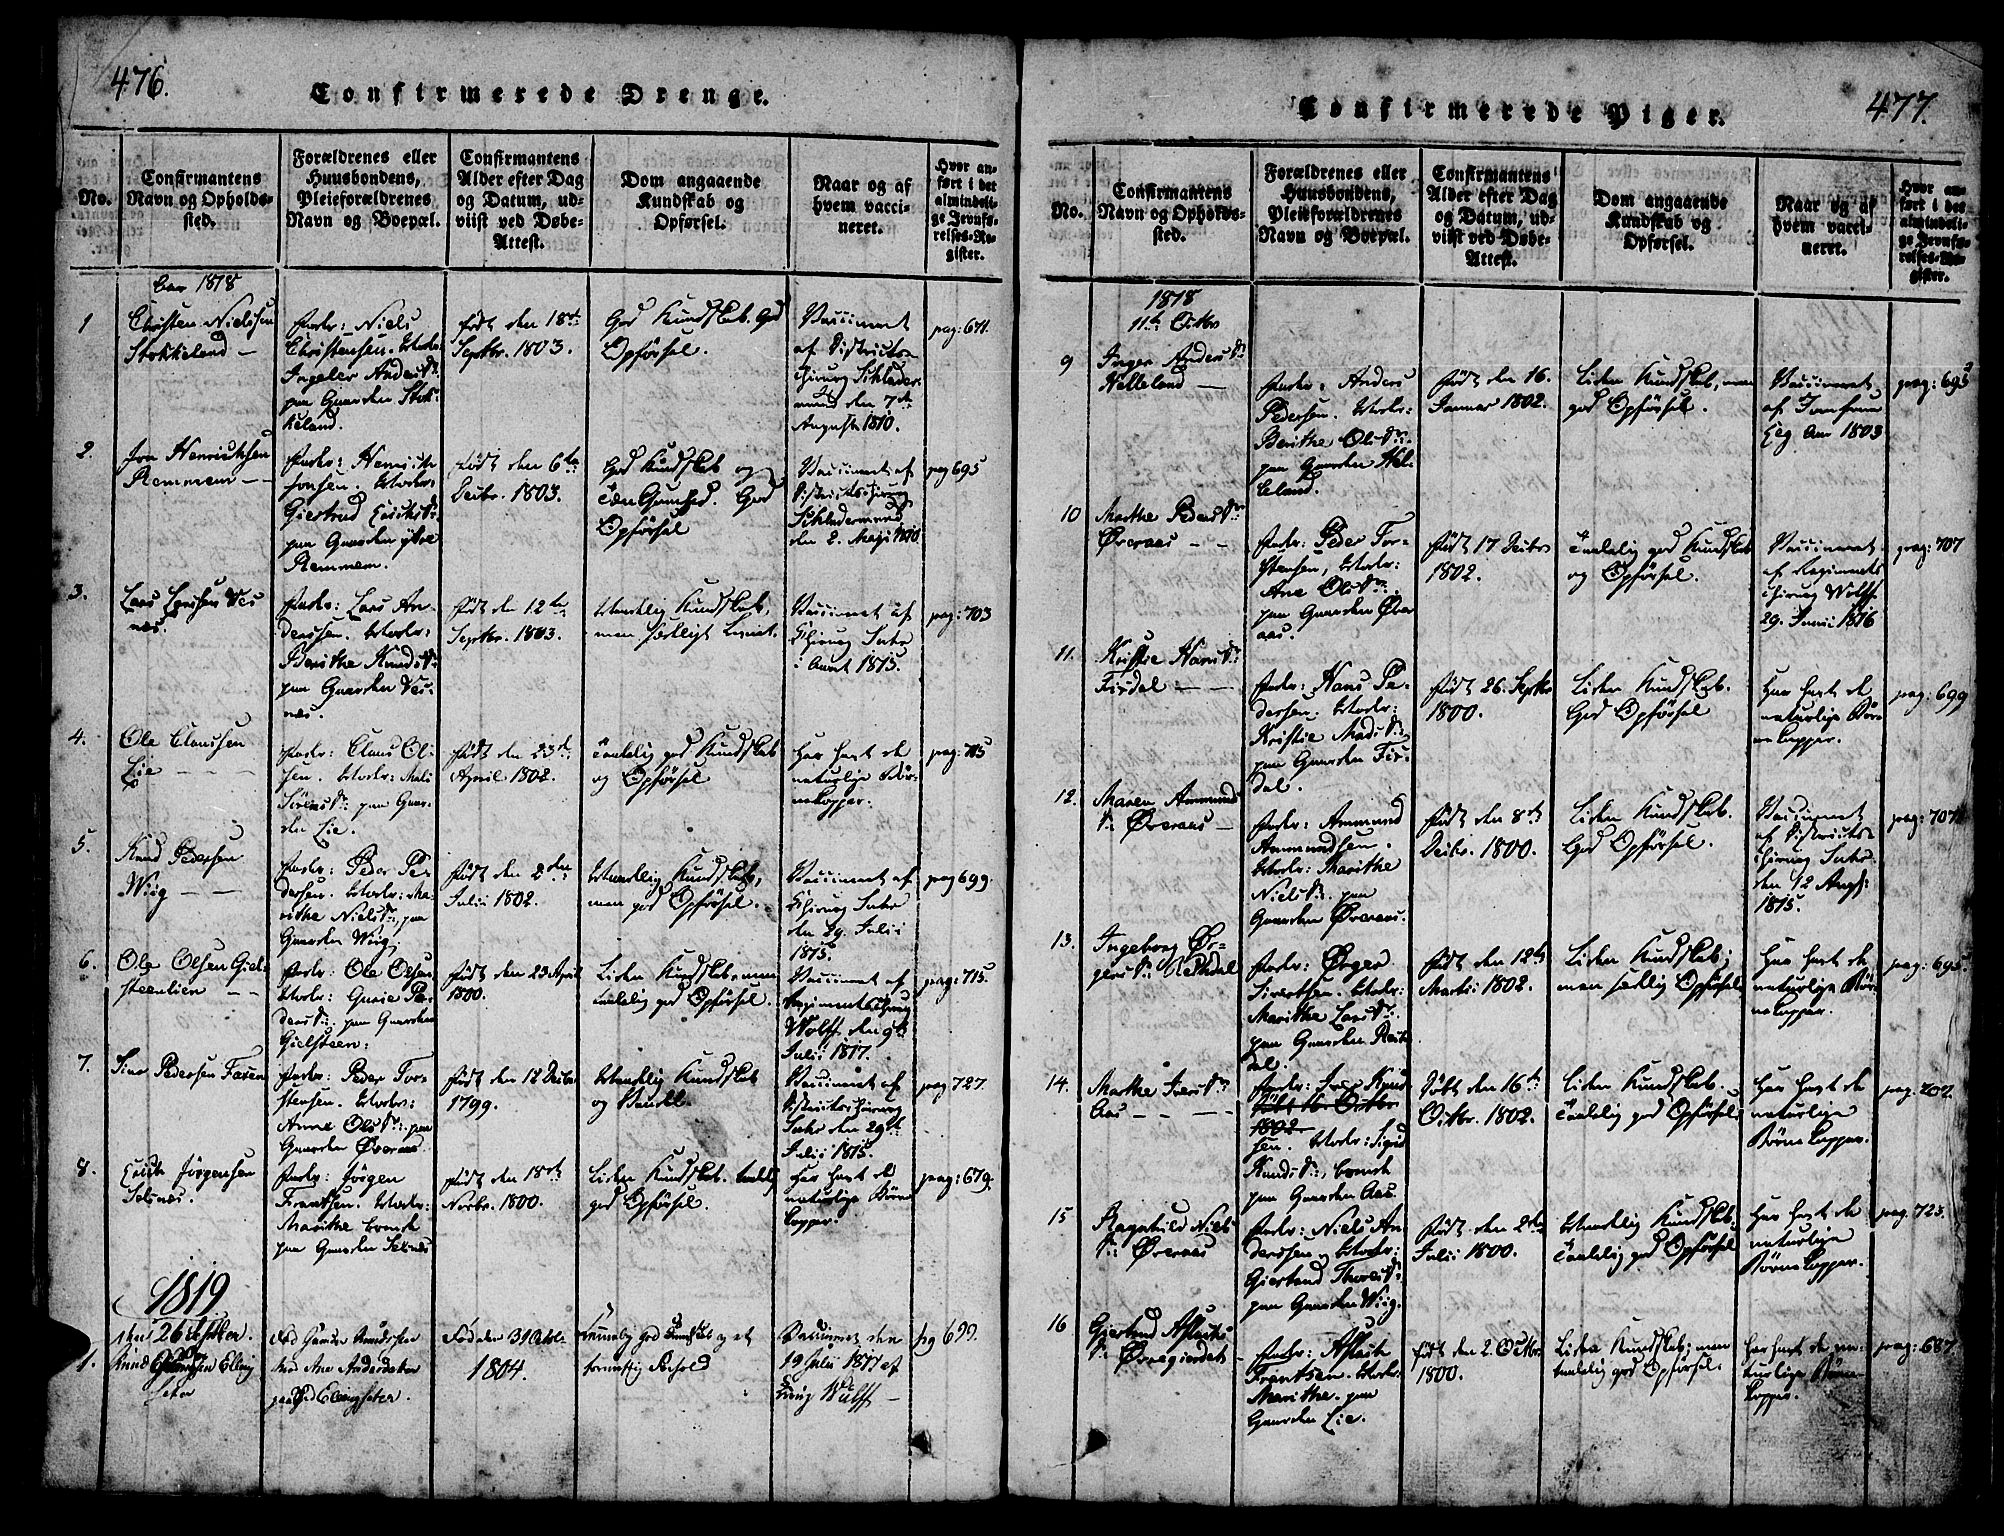 476.
Confirmerede Drenge.
No.
Confirmantens
Navn og Opholds-
sted.
Forældrenes eller
Huusbondens,
Pleieforældrenes
Navn og Boepæl.
Confirmantens
Alder efter Dag
og Datum, ud-
viist ved Døbe-
Attest.
Dom angaaende
Kundskab og
Opførsel.
Naar og af
hvem vacci-
neret.
Hvor an-
ført i det
almindeli-
ge Jevnfø-
relses-Re-
gister.
1818
1
Christen Nielssen
Stokkeland —
Fader: Niels
Christensen. Moder:
Ingeler Andersdr:
paa Gaarden Stok-
keland.
født den 18de
Septbr. 1803.
God Kundskab. God
Opførsel.
Vaccineret
af Districts-
chirurg Schlader-
mund den 7de
August 1810.
pag: 671.
2.
Jon Henrichsen
Remmem —
Fader: Henrich
Jonsen. Moder:
Giertrud Erichsdr:
paa Gaarden
Remmem.
født den 6te
Decbr. 1803.
God Kundskab og
God
Opførsel
Vaccineret af
Districtschirurg
Schladermund
den 2. Maji 1810
pag 695
3.
Lars Larsen Ves
nes.
Fader: Lars An-
derssen. Moder:
Berithe Knudsdr:
paa Gaarden Ves-
nes.
født den 12te
Septbr. 1803.
Maadelig Kundskab,
men sædeligt
Vaccineret af
Chirurg Suhr
i Aaret 1815.
pag: 703
4.
Ole Claussen
Lie — —
Fader: Claus Ol-
sen. Moder: Mali
Sørensdr: paa Gaar-
den Lie.
født den 23de
April 1802.
Taalelig god Kundskab
og Opførsel
Har havt de
naturlige Bør-
nekopper.
pag: 715
5.
Knud Pedersen
Wiig — —
Fader: Peder Pe-
dersen. Moder: Ma-
rithe Nielsdr: paa
Gaarden Wiig.
født den 2den
Julii 1802.
Maadelig Kundskab,
men god Opførsel.
Vaccineret af
Chirurg Suhr
den 29 Julii
1815.
pag 699.
6.
Ole Olsen Giel-
steenlien — —
Fader: Ole Olsen
Moder: Gurie Pe-
dersdr: paa Gaarden
Gielsteen:
født den 23 April
1800.
Liden Kundskab, men
taalelig god Opførsel.
Vaccineret af
Regimentschirurg
Wolff den 9de
Julii 1817.
pag: 715.
7.
Siver Pedersen Faxen
Fader: Peder Tor-
stensen. Moder:
Anne Olsdr: paa
Gaarden Øveraas
født den 12 Decbr
1799.
Maadelig Kundskab
og
Vaccineret af
Districts Chirurg
Suhr den 29de
Julii 1815.
pag: 727.
8.
Erich Jørgensen
Selnæs.
Fader: Jørgen
Frantsen. Moder:
Marithe
paa Gaarden Selnæs
født den 18de
Novbr. 1800.
Liden Kundskab. taalelig
god Opførsel.
Har havt de
naturlige Børne
kopper.
pag: 679.
1819
den 26 September.
1.
Knud Elling
seter
Ane Andersdatter
paa Ellingseter.
Fød den 31 Octbr
1804.
Temmelig god Kundskab og et
fornuftig Forhold
Vaccineret den
19 Julii 1817 af
Chirurg Wulff —
pag 699.
477.
Confirmerede Piger.
No.
Confirmantens
Navn og Opholds-
sted.
Forældrenes eller
Huusbondens,
Pleieforældrenes
Navn og Boepæl.
Confirmantens
Alder efter Dag
og Datum, ud-
viist ved Døbe-
Attest.
Dom angaaende
Kundskab og
Opførsel.
Naar og af
hvem vacci-
neret.
Hvor an-
ført i det
almindeli-
ge Jevnfø-
relses-Re-
gister.
1818
11te Octbr
9
Inger Andersdr:
Helleland —
Fader: Anders
Pedersen. Moder:
Berithe Olsdr:
paa Gaarden Hel-
leland.
født den 16.
Januar 1802.
Liden Kundskab, men
god Opførsel.
Vaccineret
af Jomfrue
Eeg Aar 1803
pag: 695
10
Marthe Pedersdr:
Øveraas — —
Fader: Peder Tor-
stensen, Moder:
Ane Olsdr:
paa Gaarden Øver
aas.
født 17 Decbr
1802.
Taalelig god Kundskab
og Opførsel.
Vaccineret
af Regiments
chirurg Wolff
29. Junii 1816
pag: 707
11.
Kristie Hansdr:
Firdal — —
Fader: Hans Pe-
dersen. Moder:
Kristie Madsdr:
paa Gaarden Fir-
dal.
født 26. Septbr
1800.
Liden Kundskab.
God Opførsel
Har havt de
naturlige Bør-
nekopper.
pag: 699
12.
Maren Ammunds
dr: Øveraas —
Fader: Ammund
Ammundsen.
Moder: Marithe
Nielsdr: paa
Gaarden Øveraas.
født den 8de
Decbr. 1800.
Liden Kundskab.
God Opførsel.
Vaccineret
af Districts
chirurg Suhr.
den 12 Aug.
1815.
pag: 707
13.
Ingeborg Ør-
gersdr: Rechdal
Fader: Ørger
Siverthsen. Moder:
Marithe Larsdr:
paa Gaarden Rech
dal.
født den 12te
Martii 1802.
Liden Kundskab;
men sædelig Opførsel
Har havt de
naturlige Bør-
nekopper.
pag: 695.
14.
Marthe Iversdr:
Aas — — —
Fader: Iver Knud
født 16. Octbr.
1802.
sen. Moder: Sigrid
Knudsdr:
paa Gaarden Aas.
Født den 16de
Octbr. 1802.
Liden Kundskab.
Taalelig god Opførsel.
Har havt de
naturlige
Børnekopper.
pag: 202.
15
Ragnhild Niels
dr: Øveraas
Fader: Niels An-
derssen, Moder:
Giertrud Thoresdr:
paa Gaarden Wiig.
født den 2den
Julii 1800.
Maadelig Kundskab.
Taalelig god Opførsel
Har havt de
naturlige
Børnekopper.
pag: 723.
16
Giertrud Aslachs
dr: Øvregierdet —
Fader: Aslach
Frantsen. Moder:
Marithe. paa
Gaarden Lie.
født den 2. Octbr.
1800.
Liden Kundskab; men
taalelig god Opførsel.
har havt de na-
turlige Børne-
kopper.
pag: 687.